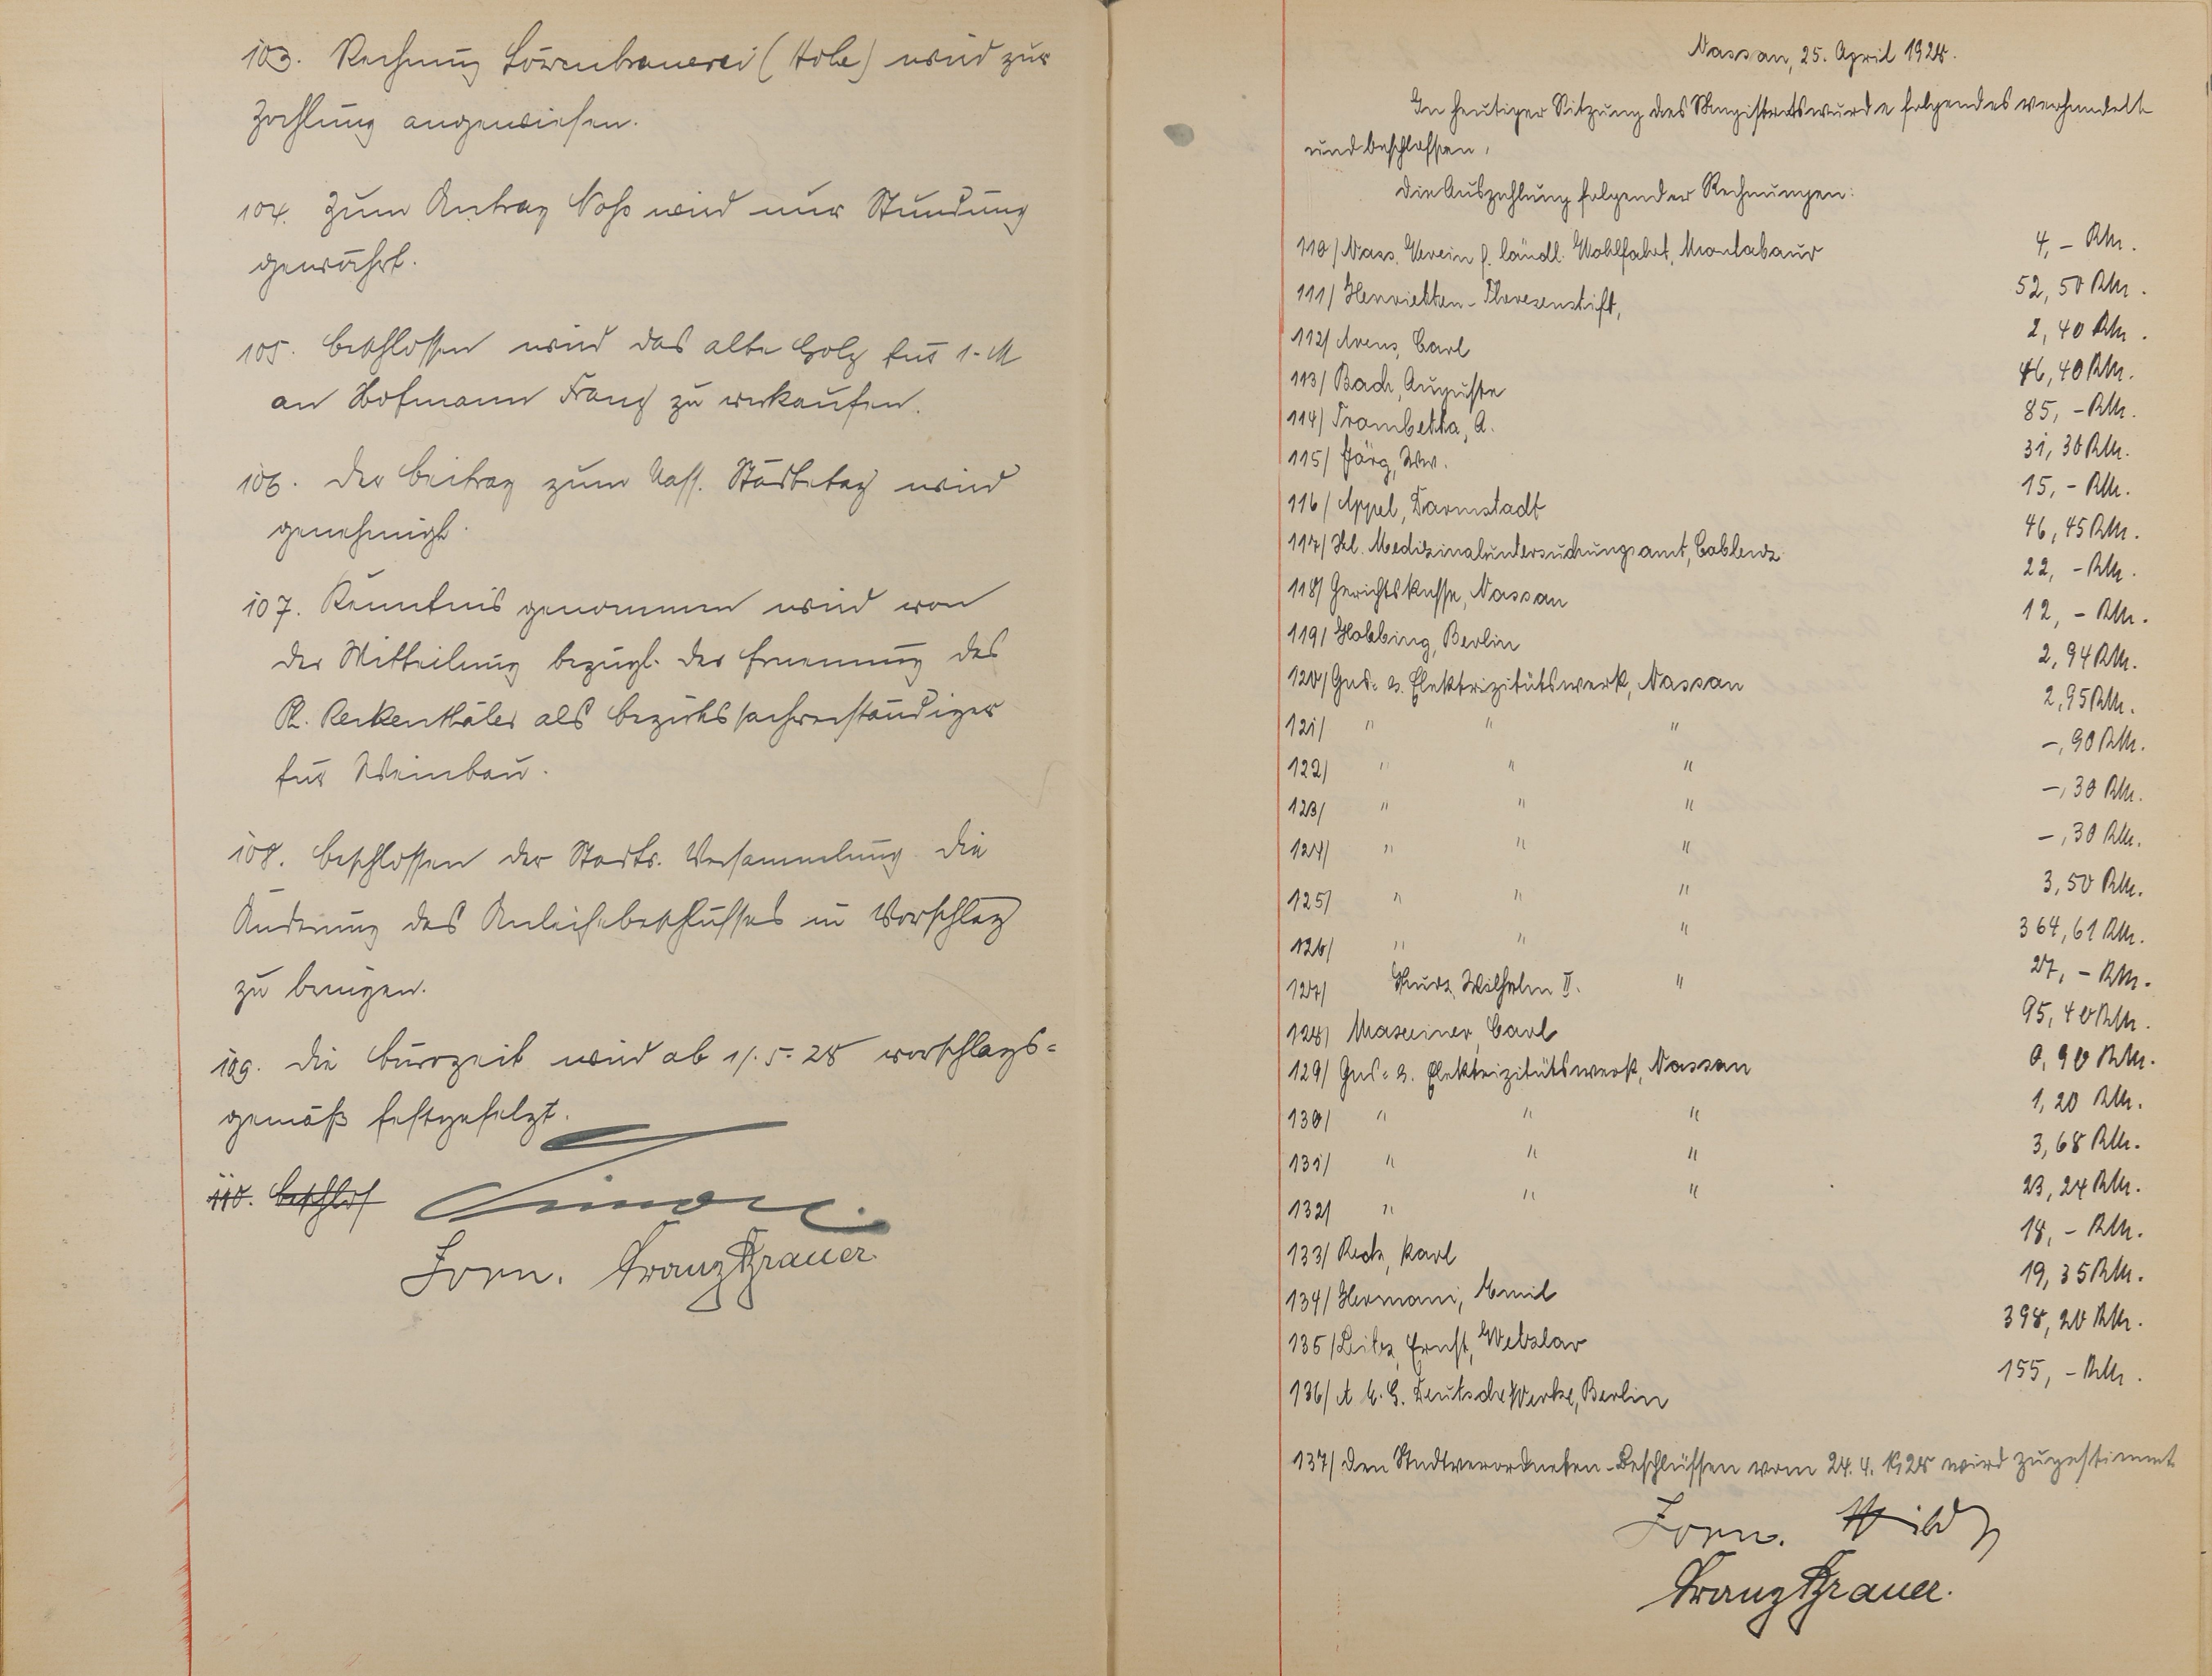 103. Rechnung Löwenbrauerei (Hohe) wird zur
Zahlung angewiesen.
104. Zum Antrag Noß wird nur Stundung
gewährt.
105. Beschlossen wird das alte Holz für 1.- M
an Hofmann Franz zu verkaufen.
106. Der Beitrag zum Nass. Städtetag wird
genehmigt.
107. Kenntnis genommen wird von
der Mitteilung bezügl. der Ernennung des
als Bezirkssachverständiger
für Weinbau.
108. Beschlossen der Stadtv. Versammlung die
Änderung des Anleihebeschlusses in Vorschlag
zu bringen.
109. Die Kurzeit wird ab 1/.5.28 vorschlags=
gemäß festgesetzt.
110. Beschlos
Zorn. Franz Brauer.
Nassau, 25. April 1928.
In heutiger Sitzung des Magistrats wurde folgendes verhandelt
und beschlossen,
die Auszahlung folgender Rechnungen:
110/ Nass. Verein f. ländl. Wohlfahrt, Montabaur 4,- RM.
111/ Henrietten-Theresenstift, 52,50 RM.
112/ Arens, Carl 2,40 RM.
113/ Bach, Auguste 46,40 RM.
114/ Trombetta, A. 85,- RM.
115/ Jörg, Ww. 31,30 RM.
116/ Appel, Darmstadt 15,- RM.
117/ Stl. Medizinaluntersuchungsamt, Coblenz 46,45 RM.
118/ Gerichtskasse, Nassau 22,- RM.
119/ Hobbing, Berlin 12,- RM.
120/ Gas- u. Elektrizitätswerk, Nassau 2,94 RM.
121/ " " " 2,95 RM.
122/ " " " -,90 RM.
123/ " " " -,30 RM.
124/ " " " -,30 RM.
125/ " " " 3,50 RM.
126/ " " " 364,61 RM.
127/ Kurz, Wilhelm II. " 27,- RM.
128/ Carl 95,40 RM.
129/ Gas- u. Elektrizitätswerk, Nassau 0,90 RM.
130/ " " " 1,20 RM.
131/ " " " 3,68 RM.
132/ " " " 23,24 RM.
133/ Karl 18,- RM.
134/ Hermani, Emil 19,35 RM.
135/ Leitz, Ernst, Wetzlar 398,20 RM.
136/ A.E.G. Deutsche Werke, Berlin 155,- RM.
137/ Den Stadtverordneten-Beschlüssen vom 24.4.1928 wird zugestimmt
Zorn.
Franz Brauer.